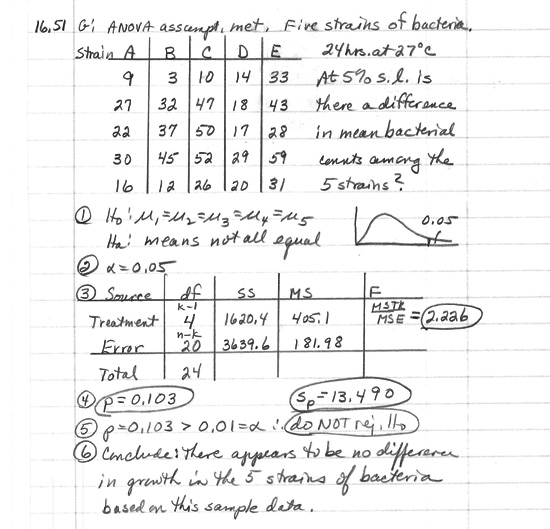 16.51 G: ANOVA assumpt. met, Five strains of bacteria.
Strain A B C D E 24hrs. at 27°C
9 3 10 14 33 At 5% s.l. Is
27 32 47 18 43 there a difference
22 37 50 17 28 in mean bacterial
30 45 52 29 59 counts among the
16 12 26 20 31 5 strains?
① H₀: μ₁=μ₂=μ₃=μ₄=μ₅ 0.05
Ha: means not all equal
② α=0.05
③ Source df SS MS F
Treatment k-1 4 1620.4 405.1 MSTR/MSE = 2.226
Error n-k 20 3639.6 181.98
Total 24
④ p=0.103 Sp=13.490
⑤ p=0.103 > 0.01=α ∴ do NOT rej. H₀
⑥ Conclude: There appears to be no difference
in growth in the 5 strains of bacteria
based on this sample data.